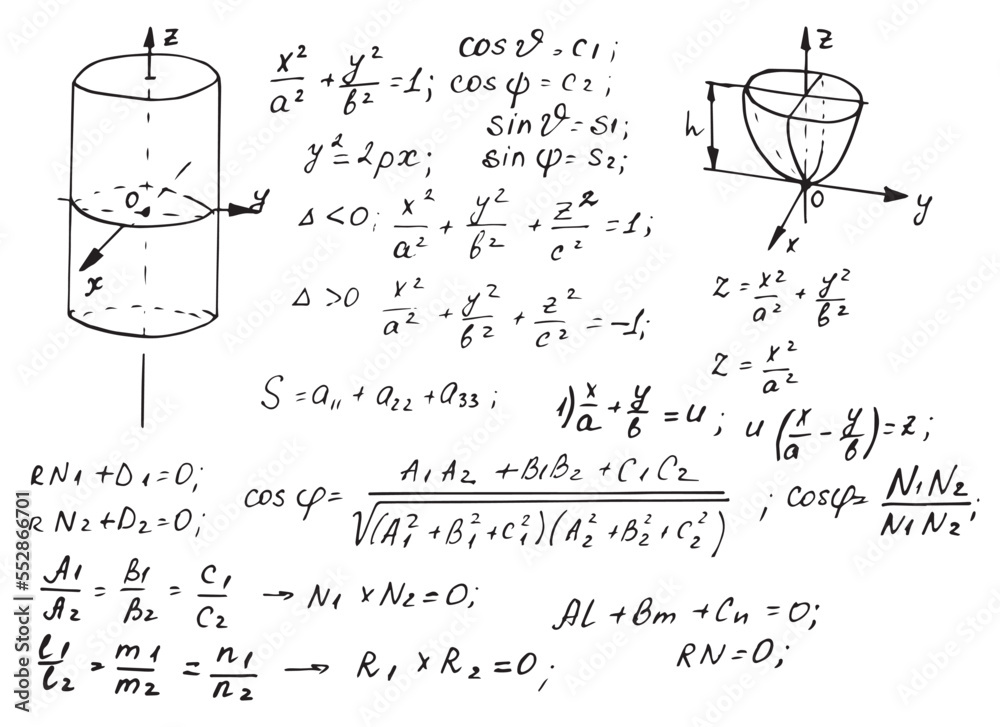 z
x²/a² + y²/b² = 1; cos ϑ = c1;
cos φ = c2;
sin ϑ = s1;
y² = 2px; sin φ = s2;
z
h
O
y
x
O
y
x
Δ < 0; x²/a² + y²/b² + z²/c² = 1;
Δ > 0 x²/a² + y²/b² + z²/c² = -1;
z = x²/a² + y²/b²
z = x²/a²
S = a₁₁ + a₂₂ + a₃₃;
1) x/a + y/b = u; u(x/a - y/b) = z;
RN1 + D1 = 0;
RN2 + D2 = 0;
cos φ = (A1A2 + B1B2 + C1C2)/√((A1² + B1² + C1²)(A2² + B2² + C2²)); cos φ = N1N2/N1N2;
A1/A2 = B1/B2 = C1/C2 → N1 × N2 = 0;
l1/l2 = m1/m2 = n1/n2 → R1 × R2 = 0;
Al + Bm + Cn = 0;
RN = 0;
Adobe Stock | #552866701